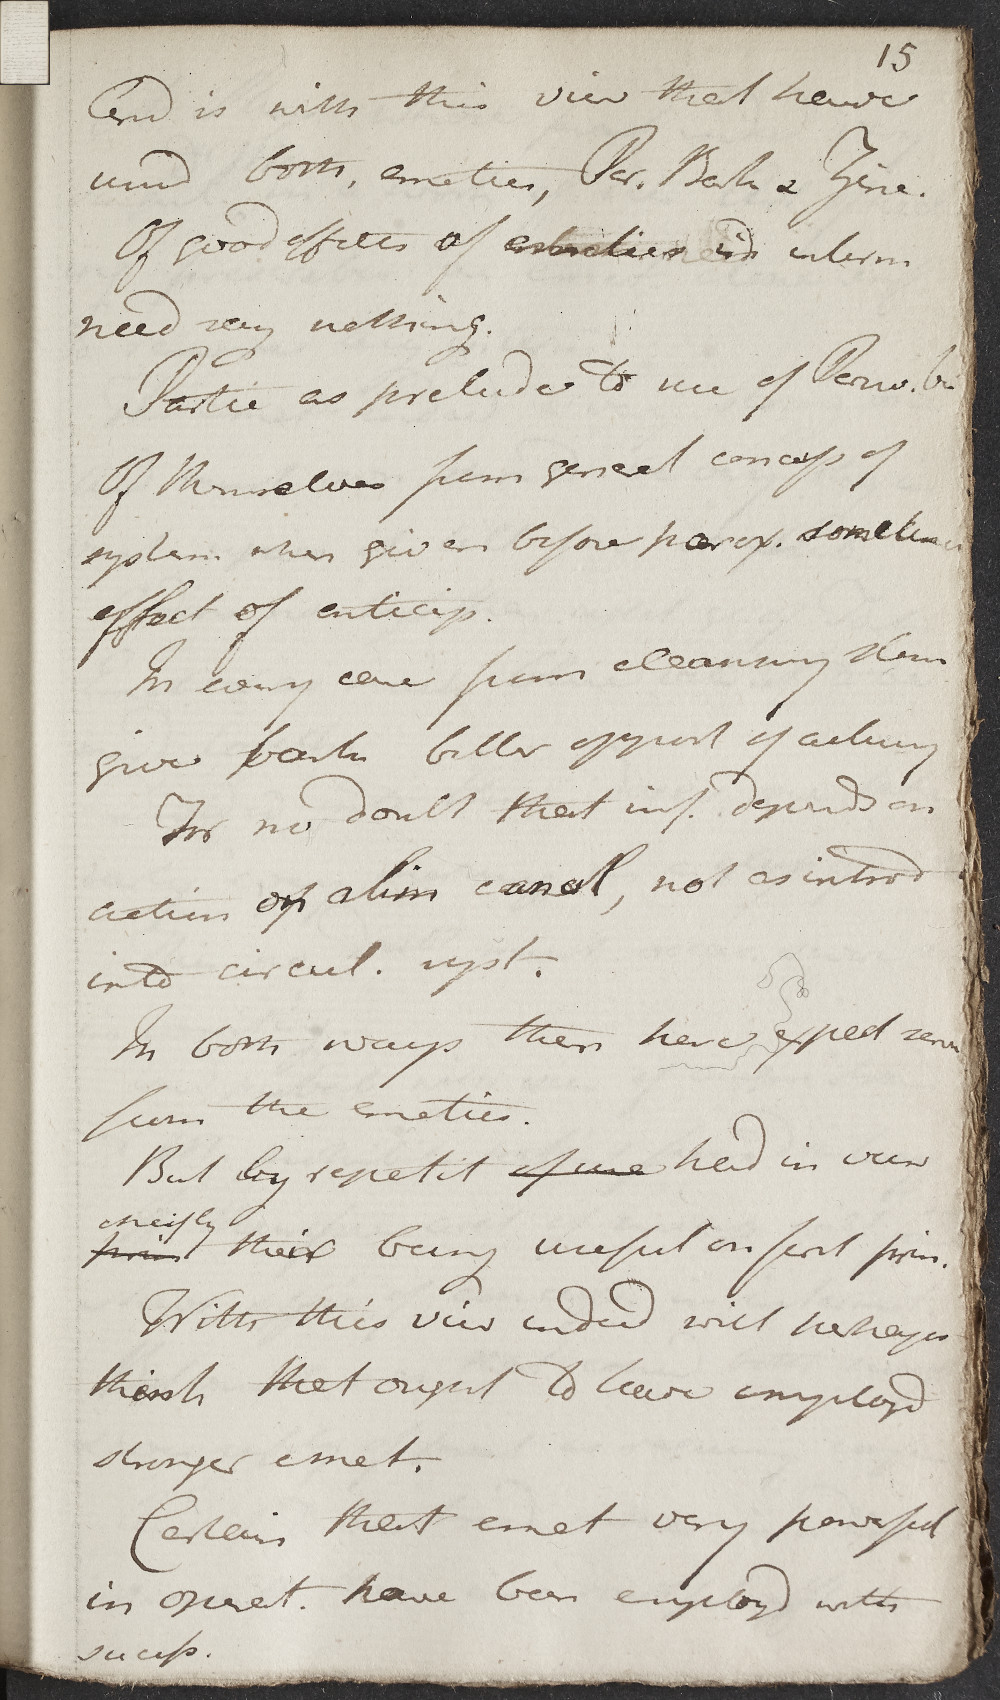 15
And is with this view that have
used both, emetics, Per. Bark & Zinc.
Of good effects of in interm
need say nothing.
Partic as prelude to use of Peruv. b
Of themselves from general concuss of
system when given before parox. sometimes
effect of anticip.
In every case from cleansing stom
give bark better opport of acting
For no doubt that inf. depends on
action on alim canal, not as introd
into circul. syst.
In both ways then have exped
from the emetics.
But by repetit of use had in view
chiefly
prin their being useful on first prin.
With this view indeed will perhaps
think that ought to have employd
stronger emet.
Certain that emet very powerful
in operat. have been employd with
success.